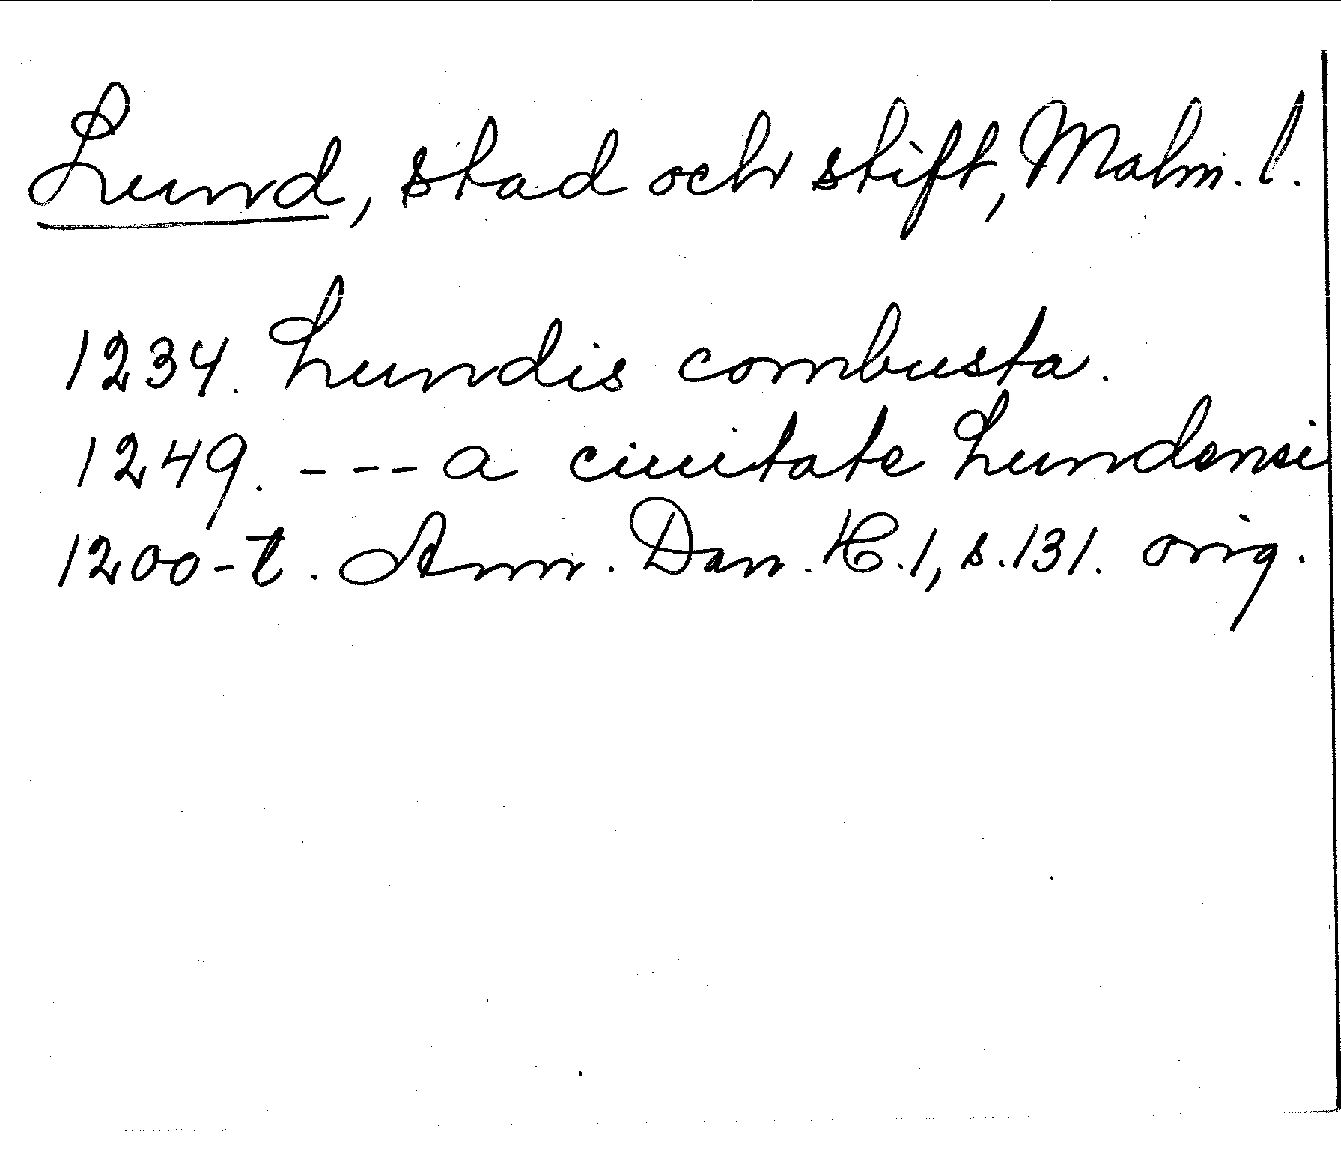 Lund, stad och stift, Malm. l.
1234. Lundis combusta.
1249. --- a ciuitate Lundensi
1200-t. Ann. Dan. K. 1, s. 131. orig.